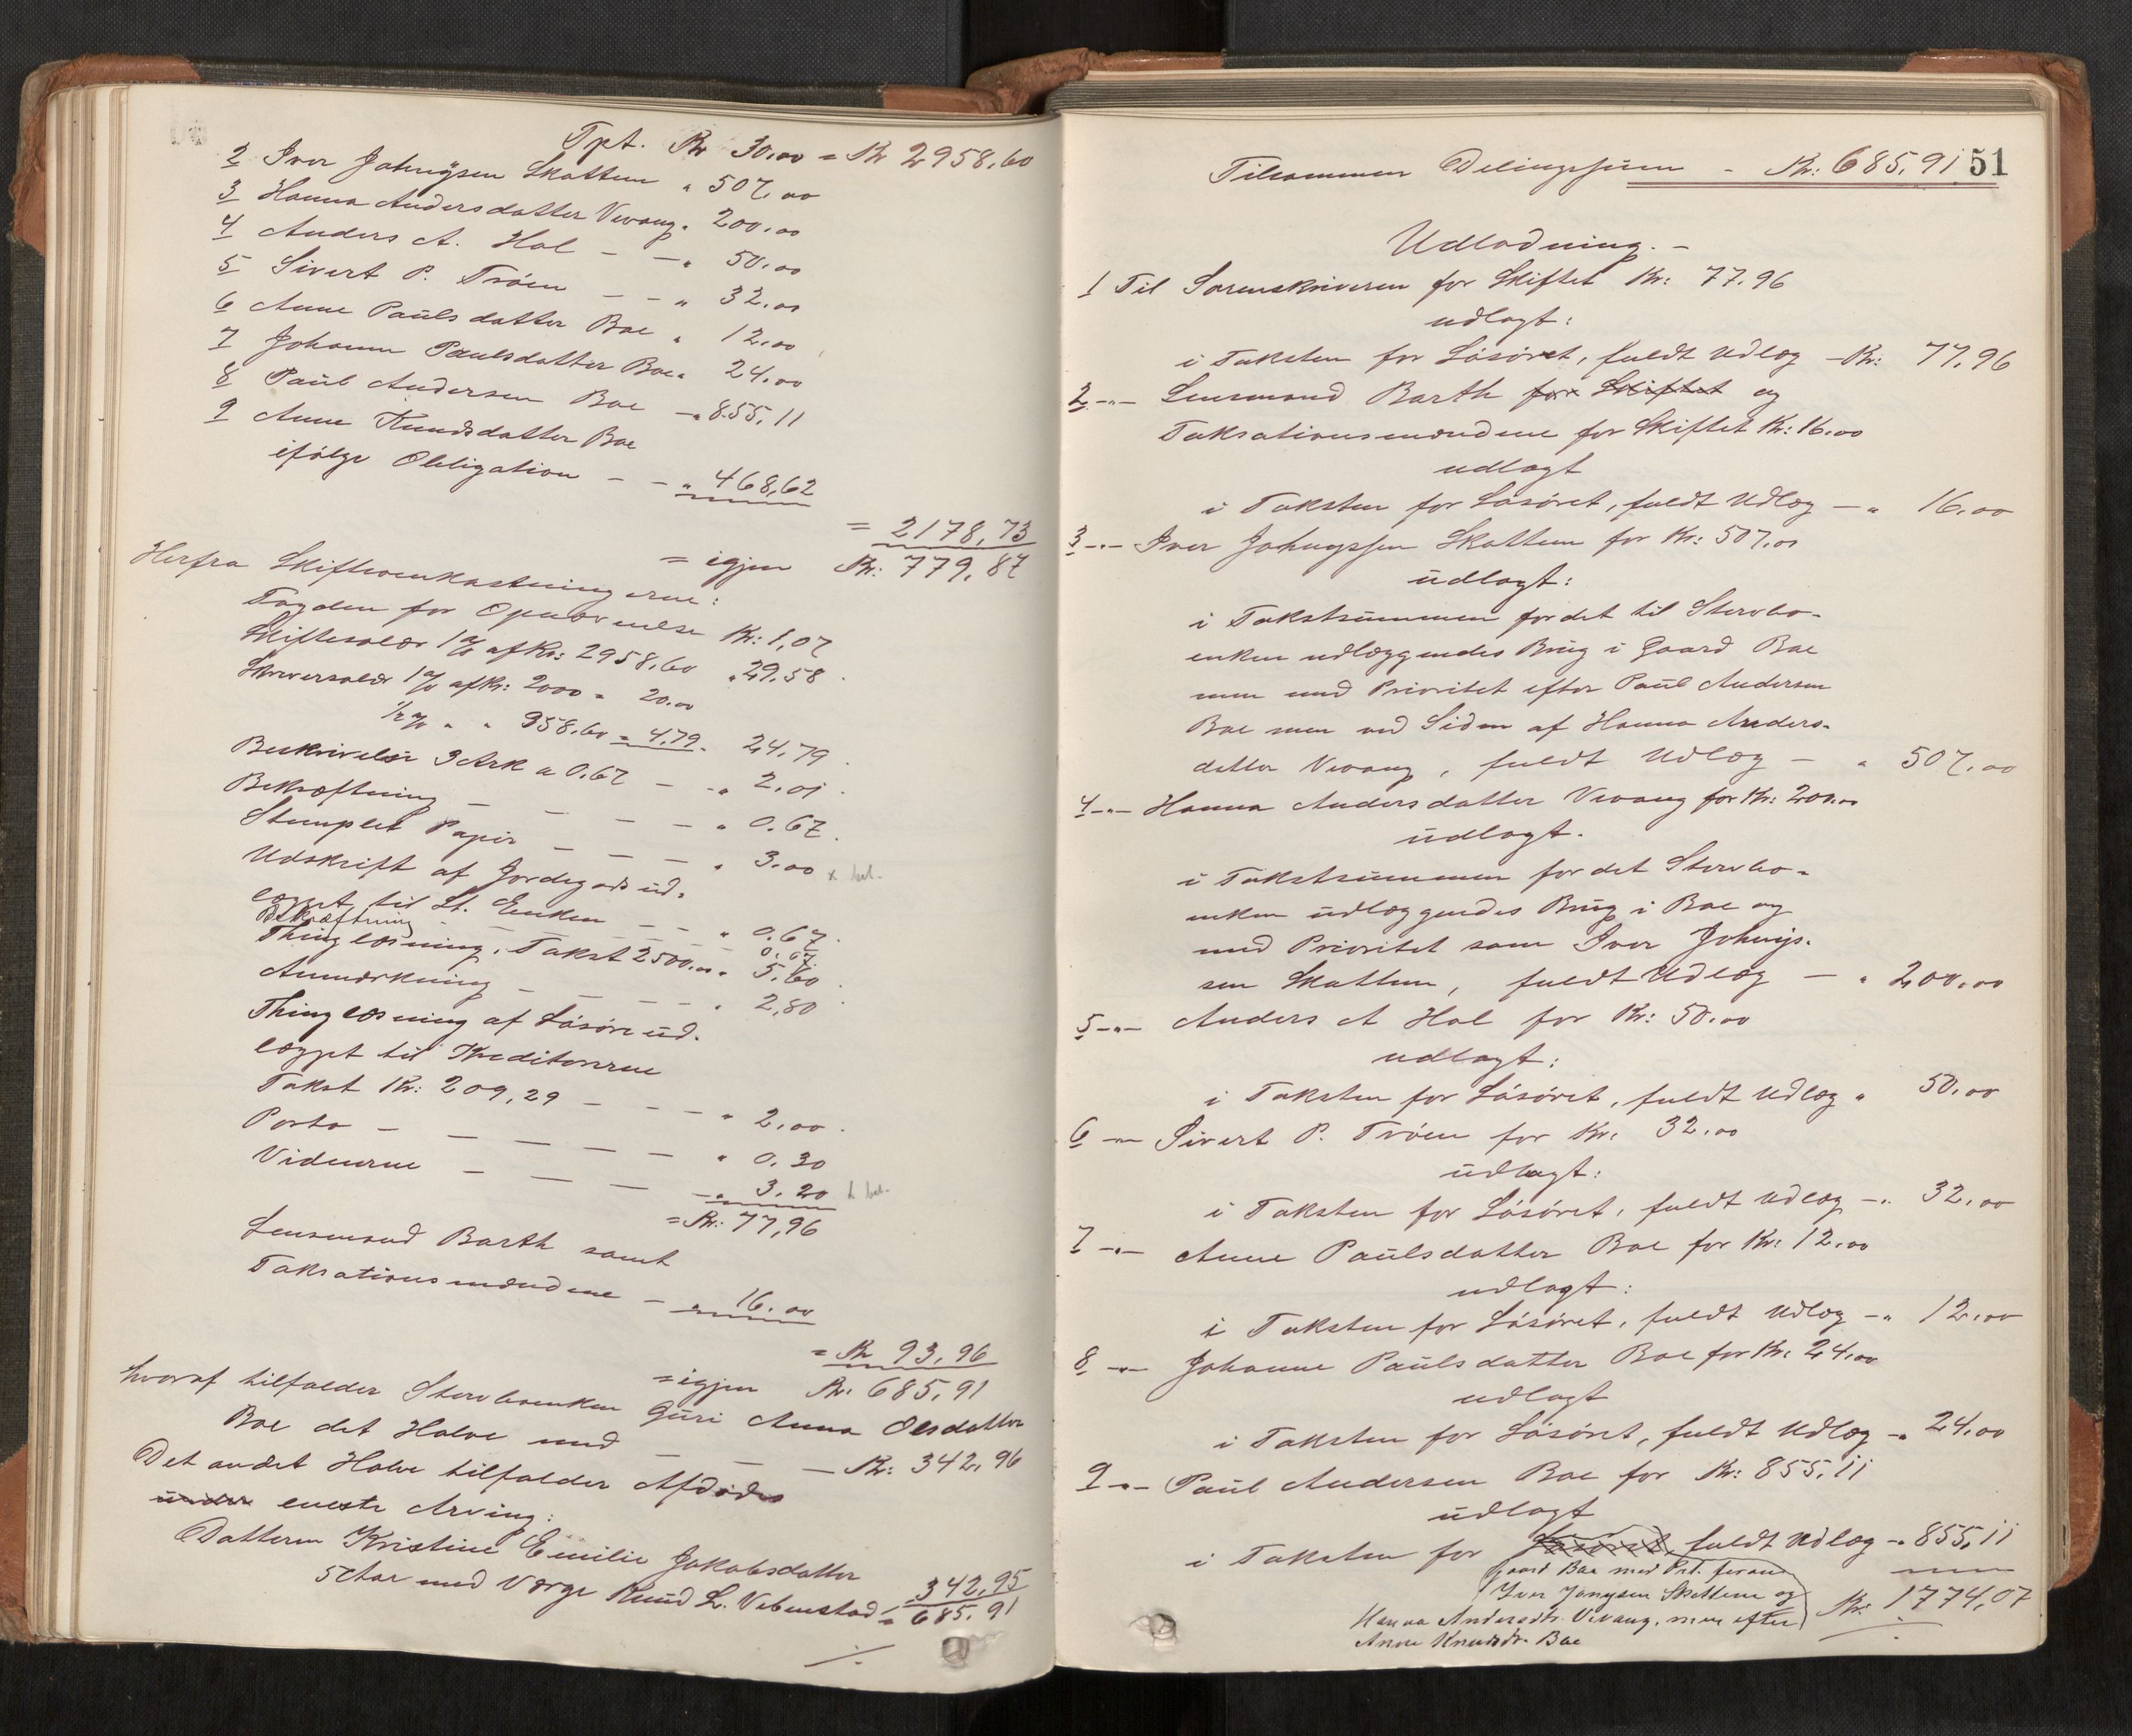 Tpt. Kr 30.00 = Kr 2958.60
2 Iver Johnysen Skattem " 507.00
3 Hanna Andersdatter Vevang " 200.00
4 Anders A. Hol - - " 50.00
5 Sivert P. Tröen - - " 32.00
6 Anne Paulsdatter Boe " 12.00
7 Johanne Paulsdatter Boe " 24.00
8 Paul Andersen Boe - " 855.11
9 Anne Knudsdatter Boe
ifølge Obligation - - " 468,62
= 2178,73
= igjen Kr: 779,87
Herfra Skifteomkostningerne:
Dagden for Opnævnelse Kr: 1,07
Skiftesalær 1 % af Kr: 2958,60 " 29.58
Skriversalær 1 % af Kr: 2000 = 20.00
1/2 % " " 958.60 = 4.79 " 24,79
Beskrivelse 3 Ark a 0.67 - - " 2,01
Bekræftning - - - - " 0.67
Stemplet Papir - - - " 3.00 x bet.
Udskrift af Jordegods ud-
lægget til St. Enken - - " 0.67
Bekræftning - - - 0.67
Thinglæsning, Takst 2500.00 " 5.60
Anmærkning - - - - " 2,80
Thinglæsning af Løsøre ud-
lægget til Kreditorerne
Takst Kr: 209,29 - - - " 2,00
Porto - - - - - " 0.30
Vidnerne - - - - " 3.20 x bet.
= Kr: 77,96
Lensmand Barth samt
Taksationsmændene - " 16.00
= Kr 93,96
= igjen Kr: 685,91
hvoraf tilfalder Stervboenken Guri Anna Olsdatter
Boe det Halve med - - - Kr: 342,96
Det andet Halve tilfalder Afdødes
eneste Arving:
Datteren Kristine Emilie Jakobsdatter
5 Aar med Værge Knud L. Vebenstad " 342,95
= 685.91
./.
51
Tilsammen Delingssum - Kr: 685,91
Udlodning. -
1 Til Sorenskriveren for Skiftet Kr: 77.96
udlagt:
i Taksten for Løsøret, fuldt Udlæg - Kr: 77,96
2 -"- Lensmand Barth for Skiftet og
Taksationsmændene for Skiftet Kr: 16.00
udlagt
i Taksten for Løsøret, fuldt Udlæg - " 16.00
3 -"- Iver Johnyssen Skattem for Kr: 507.00
udlagt:
i Takstsummen for det til Stervbo-
enken udlæggendes Brug i Gaard Boe
men med Prioritet efter Paul Andersen
Boe men ved Siden af Hanna Anders-
datter Vevang, fuldt Udlæg - " 507.00
4 -"- Hanna Andersdatter Vevang for Kr: 200.00
udlagt.
i Takstsummen for det Stervbo-
enken udlæggendes Brug i Boe og
med Prioritet som Iver Johnys-
sen Skattem, fuldt Udlæg - " 200.00
5 -"- Anders A Hol for Kr: 50.00
udlagt:
i Taksten for Løsøret, fuldt Udlæg " 50.00
6 -"- Sivert P. Tröen for Kr. 32.00
udlagt:
i Taksten for Løsøret, fuldt Udlæg - " 32.00
7 -"- Anne Paulsdatter Boe for Kr: 12.00
udlagt:
i Taksten for Løsøret, fuldt Udlæg - " 12.00
8 -"- Johanne Paulsdatter Boe for Kr. 24.00
udlagt
i Taksten for Løsøret, fuldt Udlæg - " 24.00
9 -"- Paul Andersen Boe for Kr: 855,11
udlagt
i Taksten for Løsøret, fuldt Udlæg - " 855,11
Gaard Boe med Prt. foran
Iver Jonysen Skattem og
Hanna Andersdtr. Vevang, men efter
Anne Knudsdr. Boe
Kr: 1774,07
./.